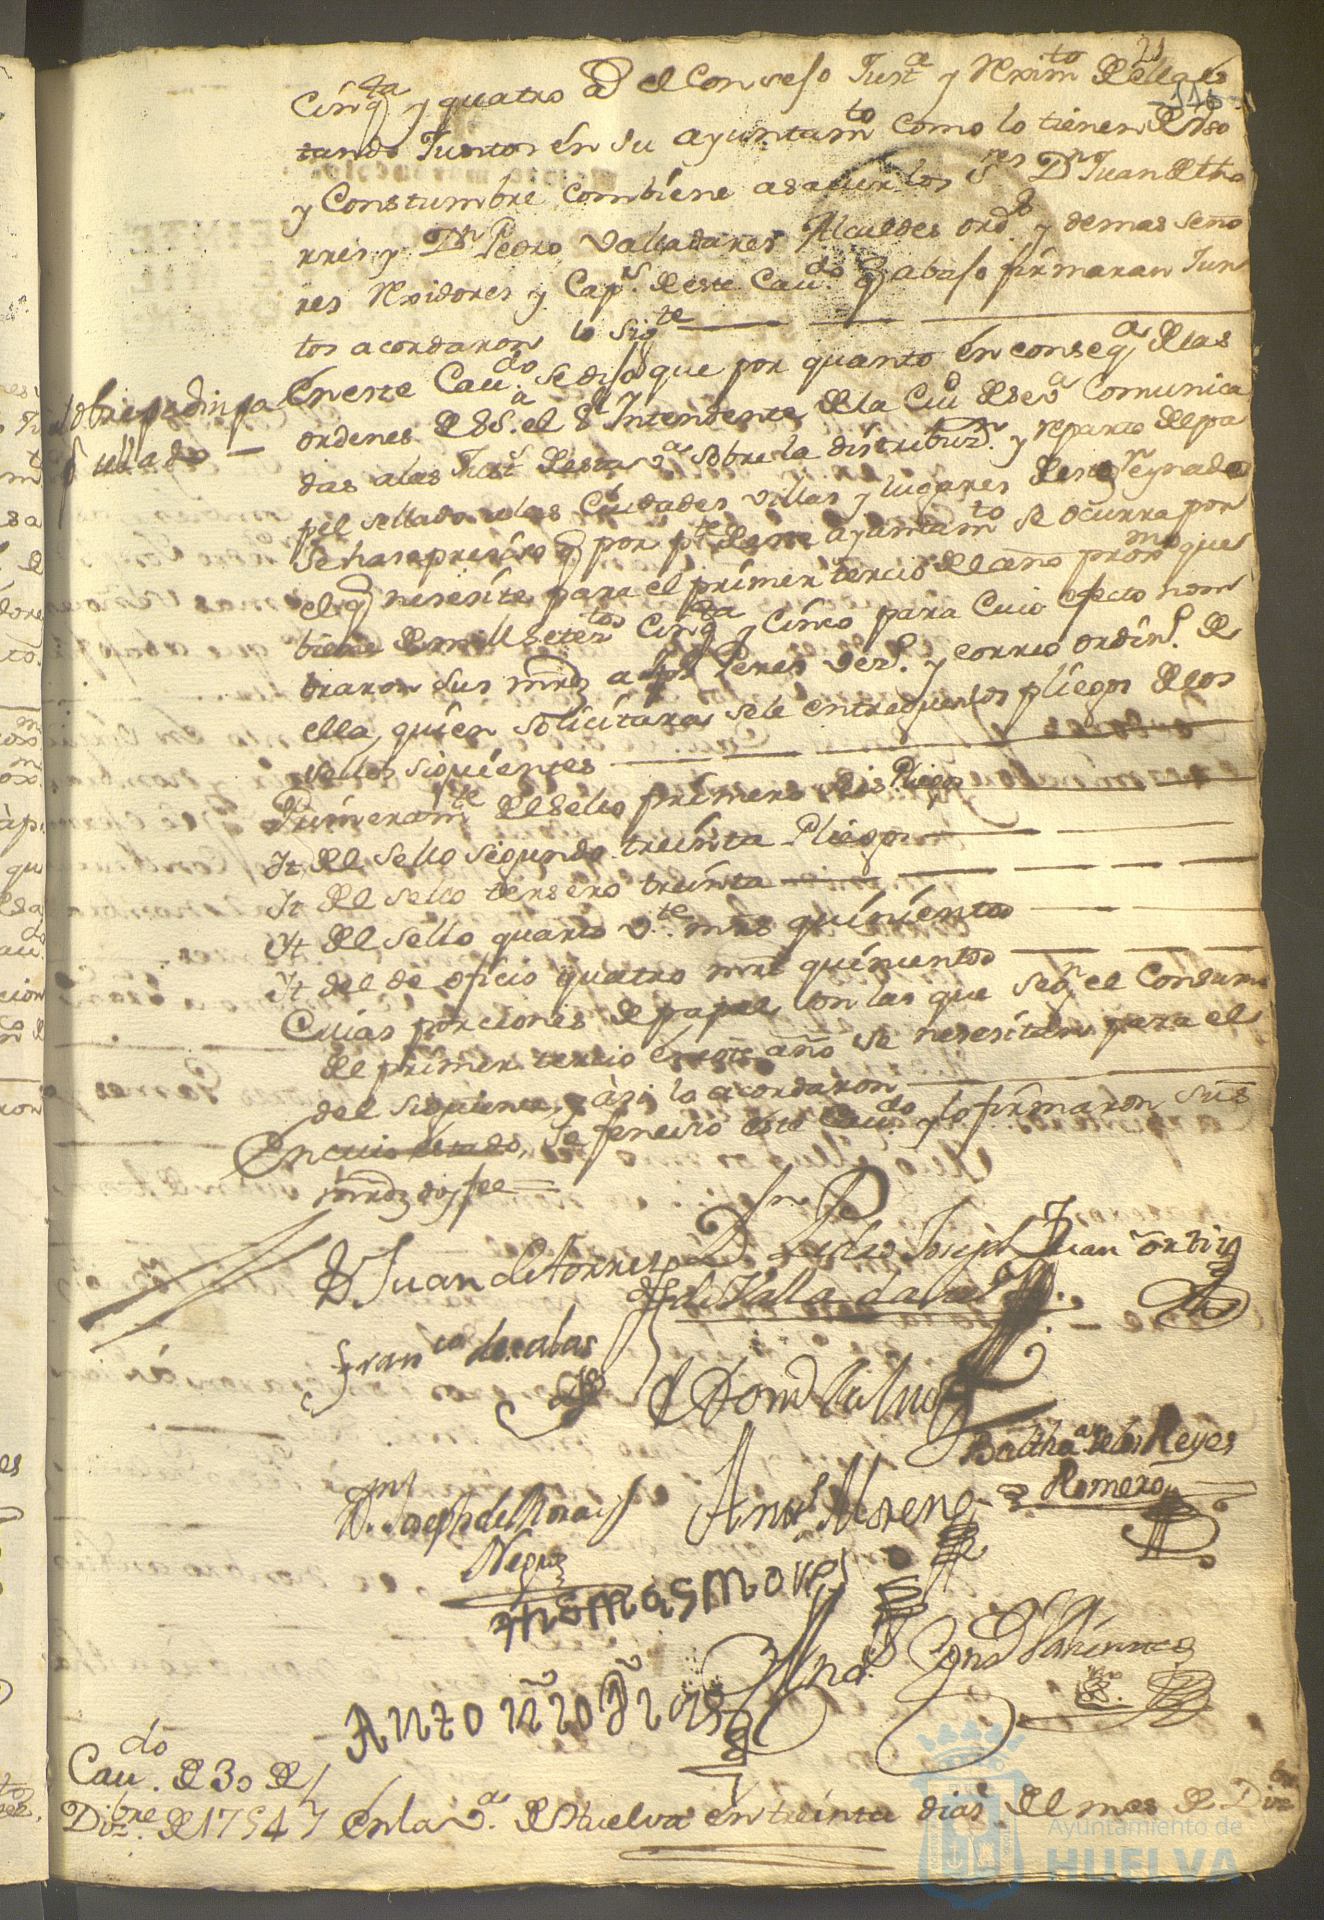 21
116
Cinqta y quatro as el Consejo Justa y Reximto de ella es
tando Juntos en su ayuntamto como lo tienen de uso
y Constumbre combiene a saver los Sres Dn Juan de tho
rres y Dn Pedro Valladares Alcaldes ords y demas seño
res Rexidores y Capres de este Cavdo q abaso firmaran Jun
tos acordaron lo sigte
sobre pedir pa
pl sellado
En este Cavdo se diso que por quanto en conseqa de las
ordenes de S.Sa el Sr Intendente de la Ciud de Seva Comunica
das a las Justs de esta va sobre la distribuzn y reparto de pa
pel sellado a las Ciudades villas y lugares de este Reynado
Se hase presiso q por pte de este ayuntamto se ocurra por
el q nesesite para el primer tercio de el año proxmo que
biene de mill setetos cinqta y cinco para cuio efecto nom
braron sus mrds a Peres vezo y correo ordino de
ella, quien solicitara se le entreguen los pliegos de los
sellos siguientes
Primeramte de el sello primero seis Pliegos
It del sello segundo treinta Pliegos
It del sello tersero treinta
It del sello quarto vte mrs quinientos
It del de oficio quatro mrs quinientos
Cuias porciones de papel son las que segn el Consumo
de primer tercio en este año se nesesitan para el
del siguiente, y asi lo acordaron
En cuio estado, se fenecio este Cavdo y lo firmaron sus
mrds doy fee =
Dn Juan de torres
Dn Pedro Joseph
de Valladares
Juan ortiz
Franco de
Balthar de los Reyes
Romero
Dn Joseph de Mora
Negro
Anto Moreno
thomas
Antonio
Cavdo de 30 de
Dizre de 1754
En la va de Huelva en treinta dias de el mes de Dizre
Ayuntamiento de
HUELVA